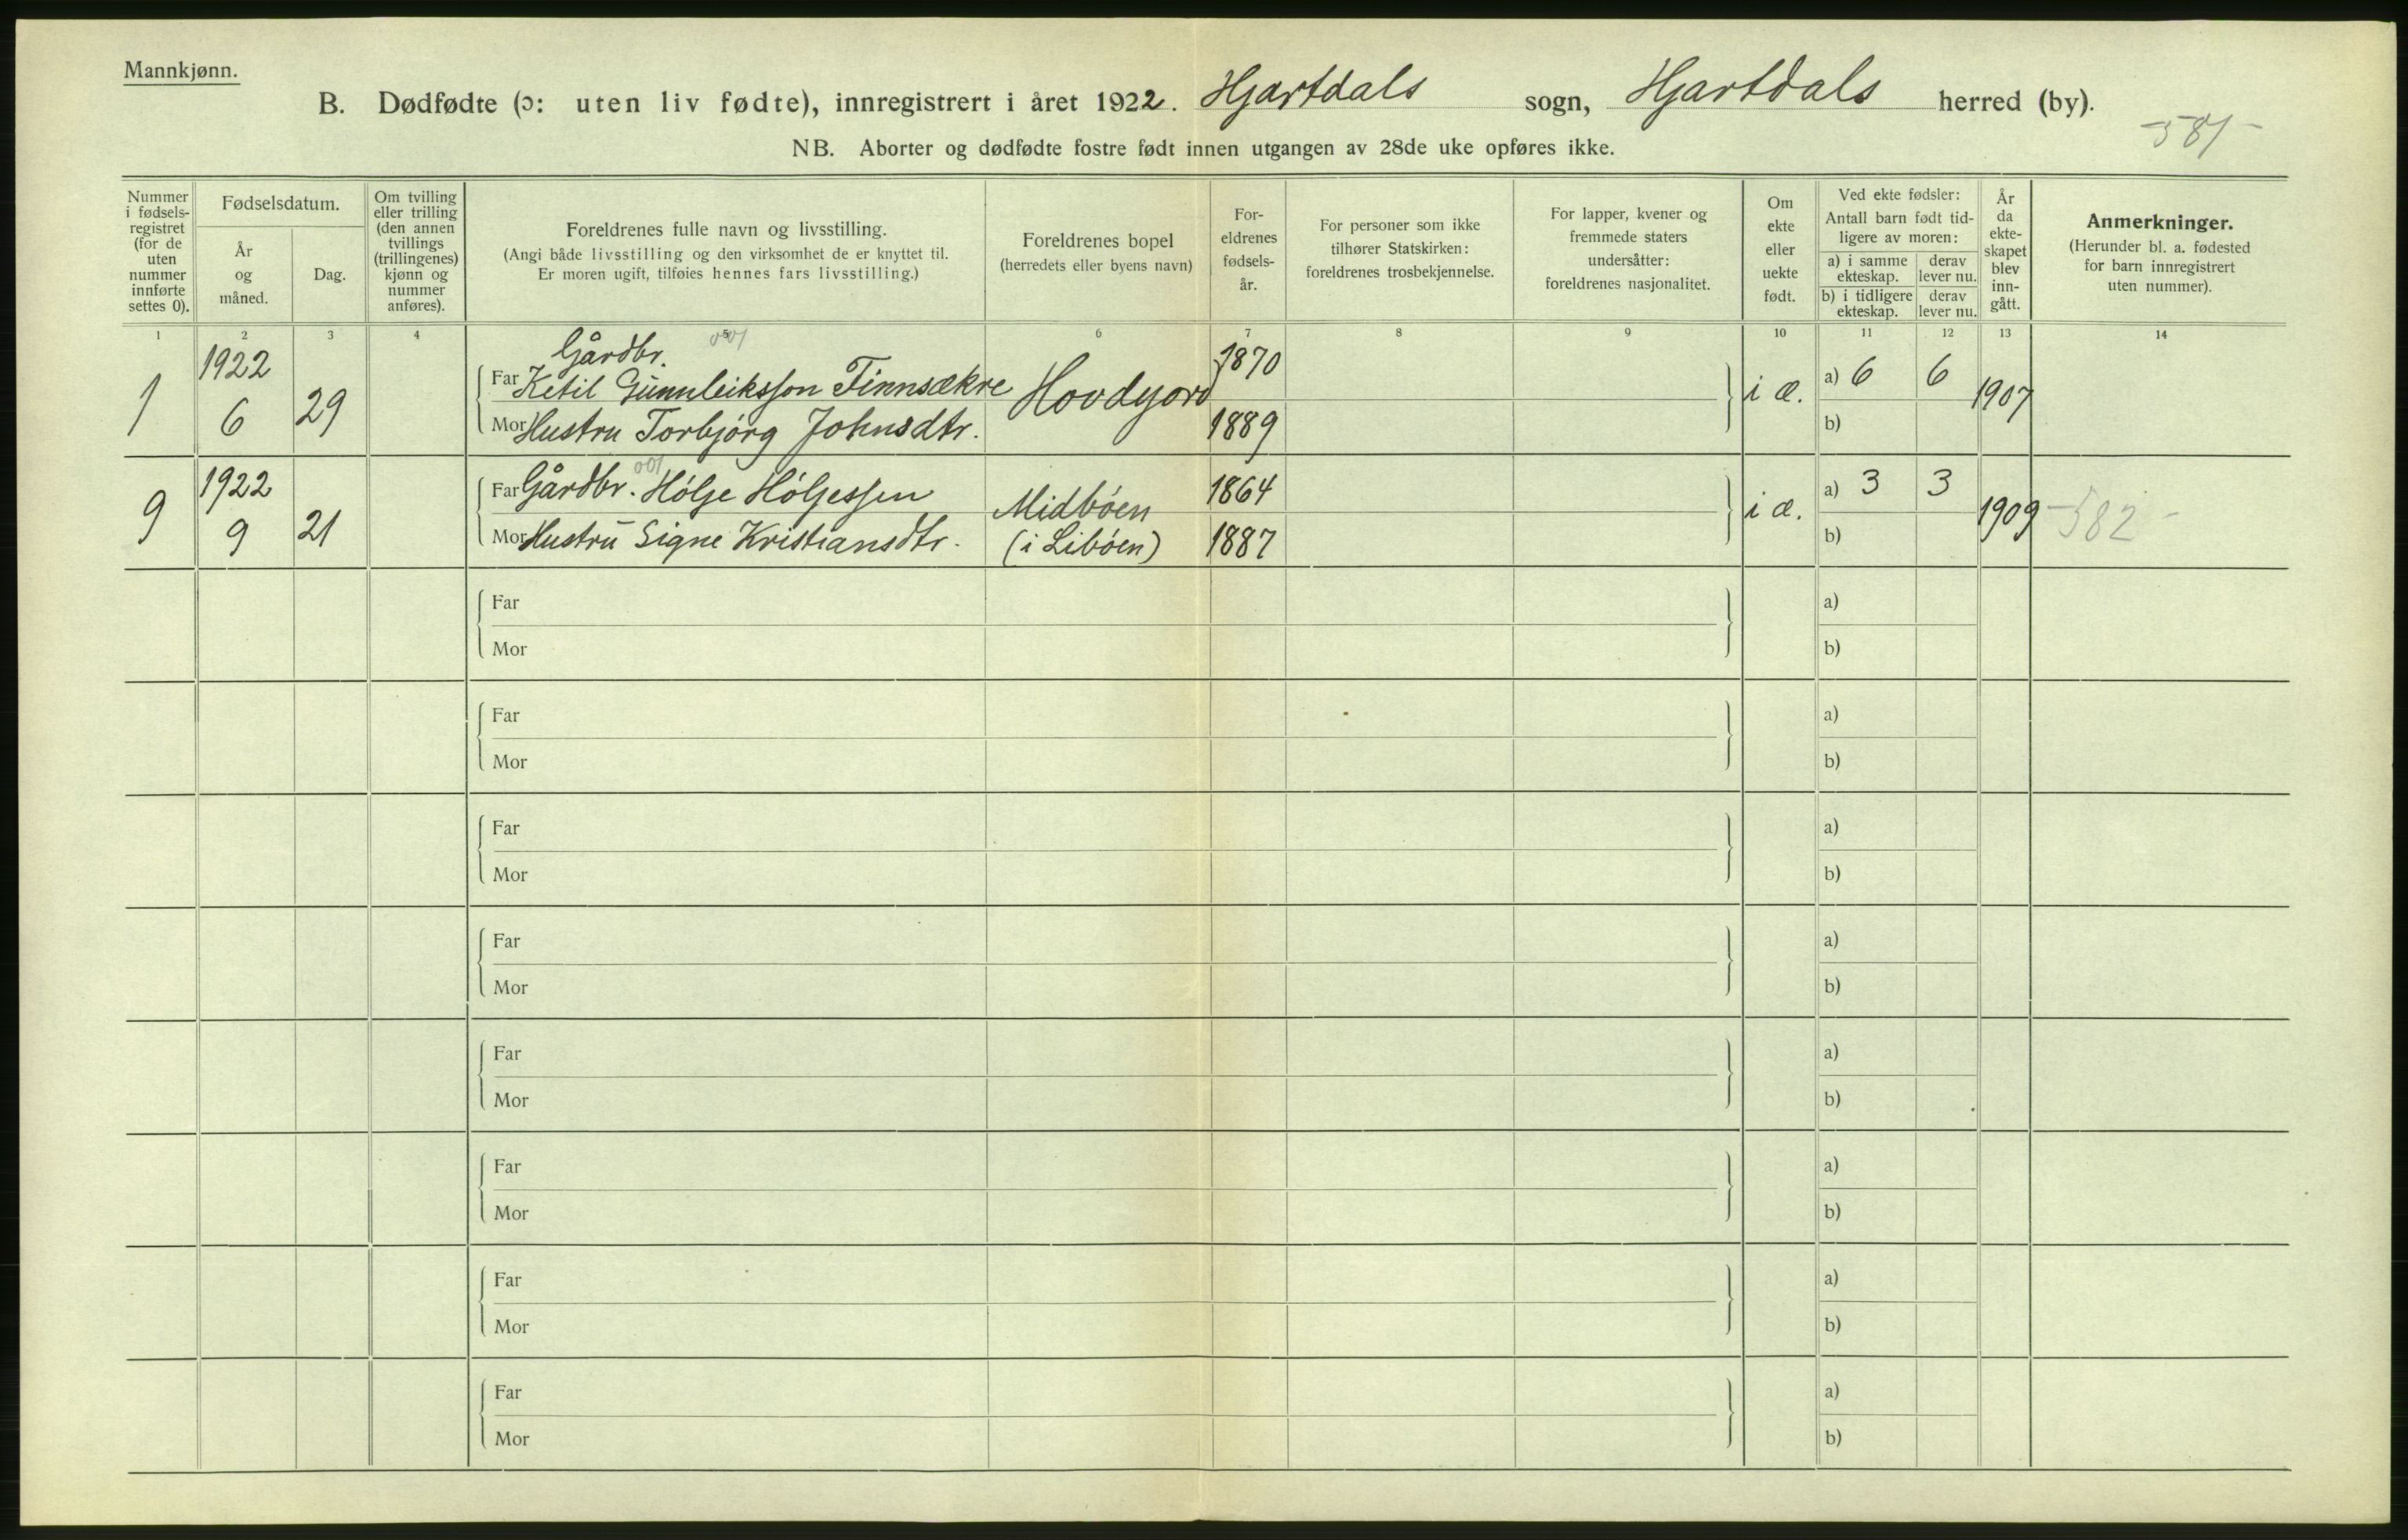 Mannkjønn.
B. Dødfødte (ɔ: uten liv fødte), innregistrert i året 1922. Hjartdals sogn, Hjartdals herred (by).
NB. Aborter og dødfødte fostre født innen utgangen av 28de uke opføres ikke.
-581-
Nummer
i fødsels-
registret
(for de
uten
nummer
innførte
settes 0).
Fødselsdatum.
År
og
måned.
Dag.
Om tvilling
eller trilling
(den annen
tvillings
(trillingenes)
kjønn og
nummer
anføres).
Foreldrenes fulle navn og livsstilling.
(Angi både livsstilling og den virksomhet de er knyttet til.
Er moren ugift, tilføies hennes fars livsstilling.)
Foreldrenes bopel
(herredets eller byens navn)
For-
eldrenes
fødsels-
år.
For personer som ikke
tilhører Statskirken:
foreldrenes trosbekjennelse.
For lapper, kvener og
fremmede staters
undersåtter:
foreldrenes nasjonalitet.
Om
ekte
eller
uekte
født.
Ved ekte fødsler:
Antall barn født tid-
ligere av moren:
a) i samme
ekteskap.
derav
lever nu.
b) i tidligere
ekteskap.
derav
lever nu.
År
da
ekte-
skapet
blev
inn-
gått.
Anmerkninger.
(Herunder bl. a. fødested
for barn innregistrert
uten nummer).
1 2 3 4 5 6 7 8 9 10 11 12 13 14
1
1922
6
29
Gårdbr.
Far Ketil Gunnleiksson Finnsækre
Mor Hustru Torbjørg Johnsdtr.
Hovdejord
1870
1889
i æ.
a) 6 6
b)
1907
9
1922
9
21
001
Far Gårdbr. Hølje Høljessen
Mor Hustru Signe Kristiansdtr.
Midbøen
(i Libøen)
1864
1887
i æ.
a) 3 3
b)
1909
-582-
Far a)
Mor b)
Far a)
Mor b)
Far a)
Mor b)
Far a)
Mor b)
Far a)
Mor b)
Far a)
Mor b)
Far a)
Mor b)
Far a)
Mor b)